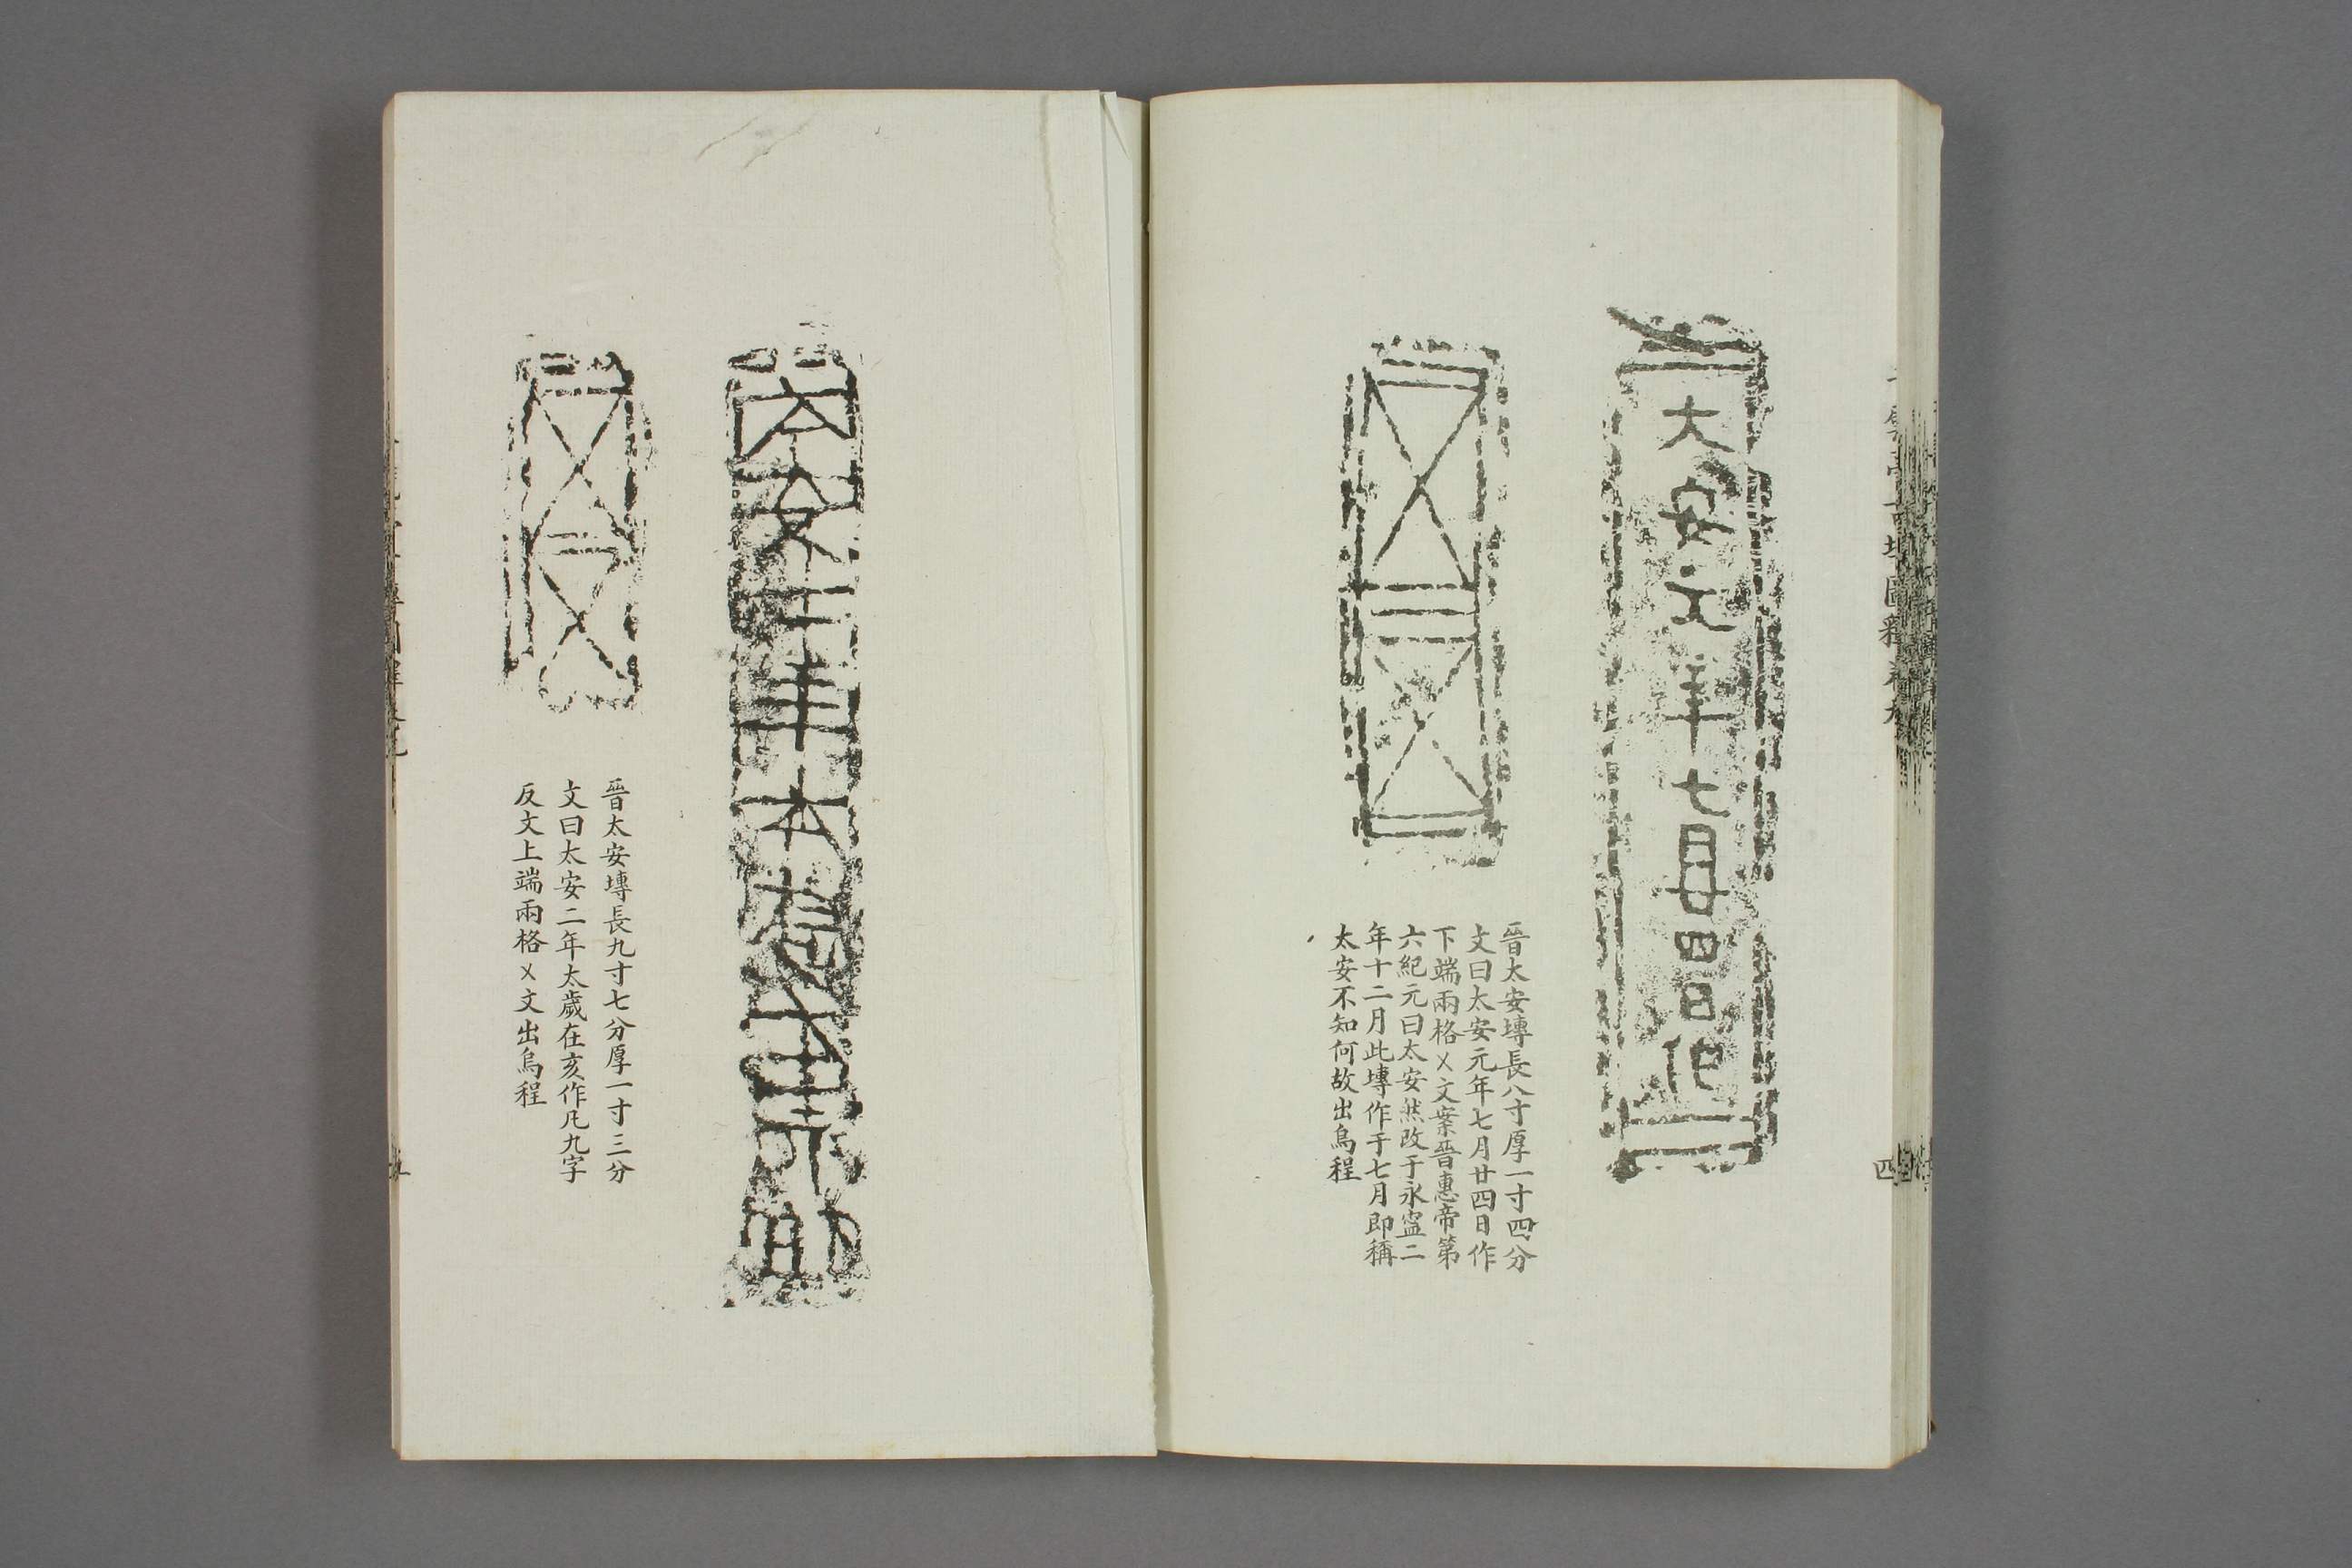 大安元年七月廿四日作
晉太安塼長八寸厚一寸四分
文曰太安元年七月廿四日作
下端兩格乂文案晉惠帝第
六紀元曰太安然改于永寍二
年十二月此塼作于七月即稱
太安不知何故出烏程
四
晉太安塼長九寸七分厚一寸三分
文曰太安二年太歲在亥作凡九字
反文上端兩格乂文出烏程